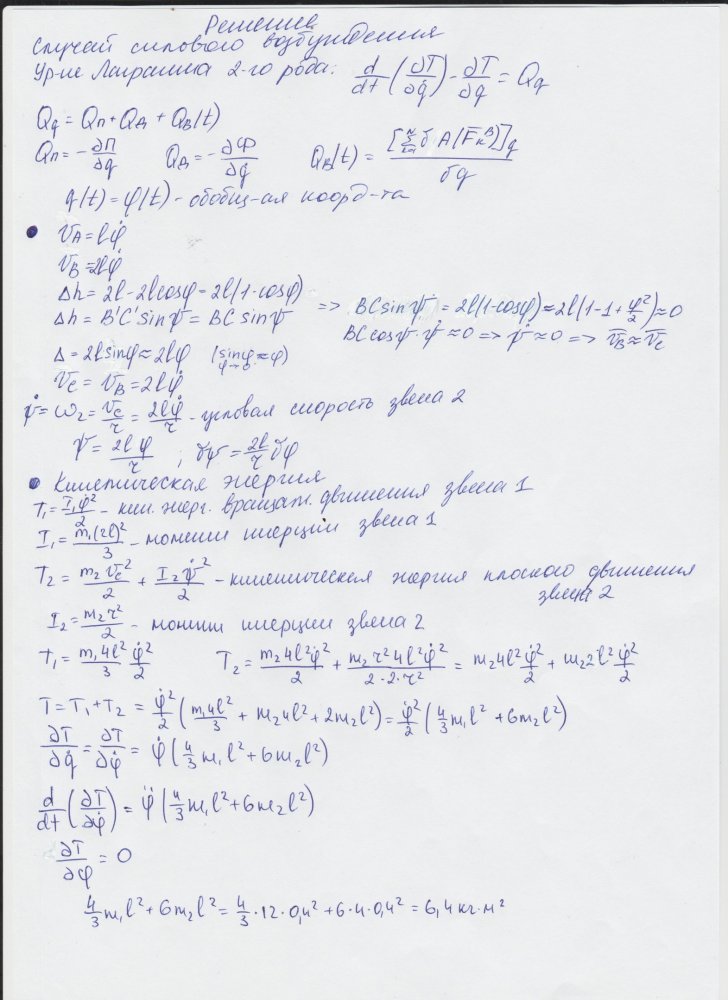 Решение
Случай силового возбуждения
Ур-ие Лагранжа 2-го рода: d/dt (∂T/∂q̇) - ∂T/∂q = Qq
Qq = Qп + Qд + Qв(t)
Qп = -∂П/∂q Qд = -∂Ф/∂q̇ Qв(t) = [Σδ A(F̄ₖᴮ)]q / δq
q(t) = φ(t) - обобщ-ая коорд-та
• VA = lφ̇
VB = 2lφ̇
Δh = 2l - 2lcosφ = 2l(1-cosφ)
Δh = B'C' sinψ = BC sinψ => BC sinψ = 2l(1-cosφ) ≈ 2l(1-1+φ²/2) ≈ 0
BC cosψ · ψ̇ ≈ 0 => ψ̇ ≈ 0 => V̄B ≈ V̄C
Δ = 2l sinφ ≈ 2lφ (sinφ ≈ φ) φ→0
VC = VB = 2lφ̇
ψ̇ = ω₂ = VC/r = 2lφ̇/r - угловая скорость звена 2
ψ = 2lφ/r ; δψ = 2l/r δφ
• Кинетическая энергия
T₁ = I₁φ̇²/2 - кин. энерг. вращат. движения звена 1
I₁ = m₁(2l)²/3 - момент инерции звена 1
T₂ = m₂VC²/2 + I₂ψ̇²/2 - кинетическая энергия плоского движения
звена 2
I₂ = m₂r²/2 - момент инерции звена 2
T₁ = m₁4l²/3 φ̇²/2 T₂ = m₂4l²φ̇²/2 + m₂r²4l²φ̇²/2·2·r² = m₂4l² φ̇²/2 + m₂2l² φ̇²/2
T = T₁ + T₂ = φ̇²/2 (m₁4l²/3 + m₂4l² + 2m₂l²) = φ̇²/2 (4/3 m₁l² + 6m₂l²)
∂T/∂q̇ = ∂T/∂φ̇ = φ̇ (4/3 m₁l² + 6m₂l²)
d/dt (∂T/∂φ̇) = φ̈ (4/3 m₁l² + 6m₂l²)
∂T/∂φ = 0
4/3 m₁l² + 6m₂l² = 4/3 · 12 · 0,4² + 6 · 4 · 0,4² = 6,4 кг·м²